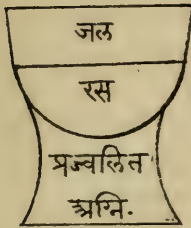 जल
रस
प्रज्वलित
अग्नि.